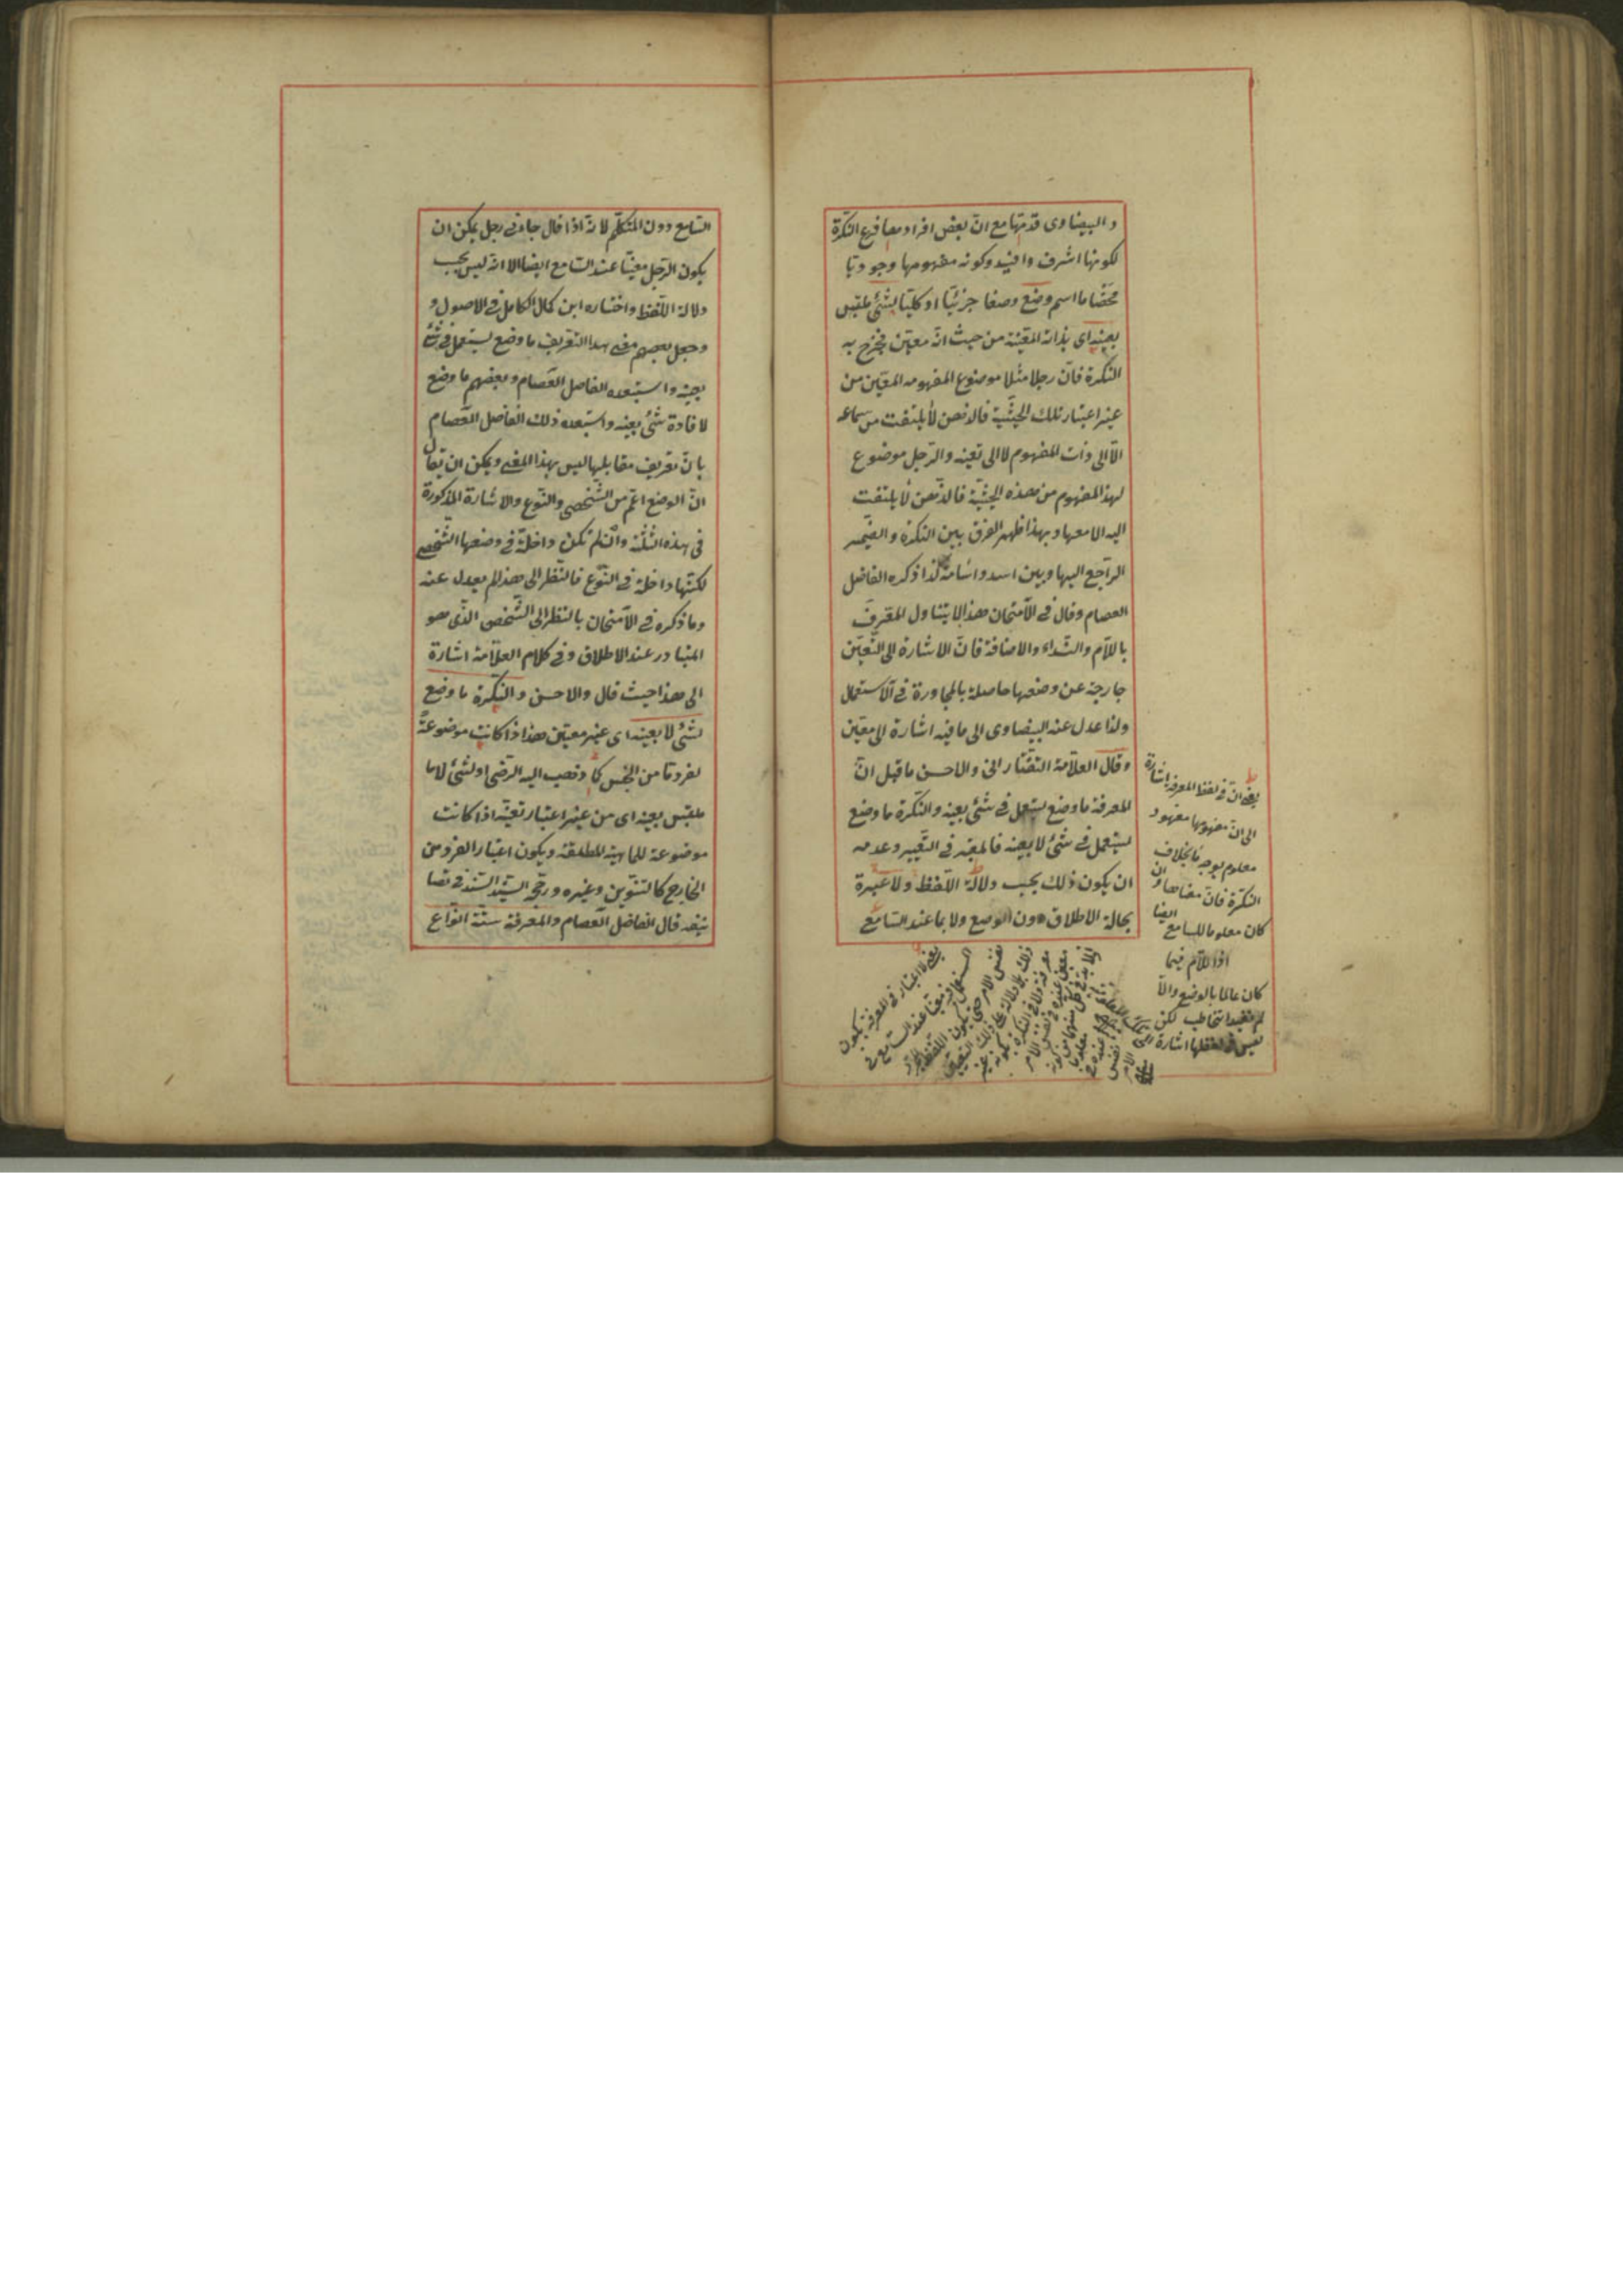 والبيضاوى قدمتها مع انّ بعض افراد معا فرع النكرة
لكونها اشرف وافيد وكونه مفهومها وجوديا
محضا ما اسم وضع وضعا جزئيا او كليا لشئ ملتبس
بعينه اى بذاته المعيّنة من حيث انّه معيّن فخرج به
النكرة فانّ رجلا مثلا موضوع المفهومه المعيّن من
غير اعتبار تلك الحيثيّة فالذهن لا يلتفت من سماعه
الّا الى ذات المفهوم لا الى تعينه والرّجل موضوع
لهذ المفهوم من هذه الحيثيّة فالذّهن لا يلتفت
اليه الا معها وبهذا ظهر الفرق بين النكرة والضّمير
الرّاجع اليها وبين اسد واسامة كذا ذكره الفاضل
العصام وقال فى الامتحان هذا لا يتناول المعرّف
باللّام والنّداء والاضافة فانّ الاشارة الى التّعيّن
خارجة عن وضعها حاصلة بالمجاورة فى الاستعمال
ولذا عدل عنه البيضاوى الى ما فيه اشارة الى معيّن
وقال العلّامة التفتازانى والاحسن ما قيل انّ
المعرفة ما وضع ليستعمل فى شئ بعينه والنّكرة ما وضع
ليستعمل فى شئ لا بعينه فالمعتبر فى التّعيين وعدمه
ان يكون ذلك بحسب دلالة اللّفظ ولا عبرة
بحالة الاطلاق دون الوضع ولا بما عند السّامع
يعنى انّ فى لفظ المعرفة اشارة
الى انّ مفهومها معهود
معلوم بوجه ما بخلاف
النكرة فانّ معناها وان
كان معلوما للسامع ايضا
اذا اللّام فيما
كان عالما بالوضع والّا
لم يفيد التخاطب لكن
ليس فى لفظها اشارة
يعنى لا اعتبار فى المعرفة بكون
المستعمل فيه معيّنا عند السامع فى
نفس الامر حتى يكون اللفظ
ذلك بلا دلالة على ذلك التعيين
معرفة ولا فى النكرة بكونه غير
معيّن عنده فى نفس الامر
السّامع دون المتكلّم لانّه اذا قال جاءنى رجل يمكن ان
يكون الرّجل معيّنا عند السّامع ايضا الا انّه ليس بحسب
دلالة اللّفظ واختاره ابن كمال الكامل فى الاصول و
وجعل بعضهم معنى هذا التّعريف ما وضع ليستعمل فى شئ
بعينه واستبعده الفاضل العصام وبعضهم ما وضع
لافادة شئ بعينه واستبعده ذلك الفاضل العصام
بانّ تعريف مقابلها ليس بهذا المعنى ويمكن ان يقال
انّ الوضع اعمّ من الشّخصى والنّوع والاشارة المذكورة
فى هذه الثلثة وان لم تكن داخلة فى وضعها الشّخصى
لكنّها داخلة فى النّوع فالنّظر الى هذا لم يعدل عنه
وما ذكره فى الامتحان بالنّظر الى الشّخص الّذى هو
المتبادر عند الاطلاق وفى كلام العلّامة اشارة
الى هذا حيث قال والاحسن والنّكرة ما وضع
لشئ لا بعينه اى غير معيّن هذا اذا كانت موضوعة
لفرد ما من الجنس كما ذهب اليه الرّضى او لشئ لا ما
ملتبس بعينه اى من غير اعتبار تعيّنه اذا كانت
موضوعة للماهية المطلقة ويكون اعتبار الفرد من
الخارج كالتّنوين وغيره ورجّح السّيّد السّند فى تصا
نيفه قال الفاضل العصام والمعرفة ستّة انواع